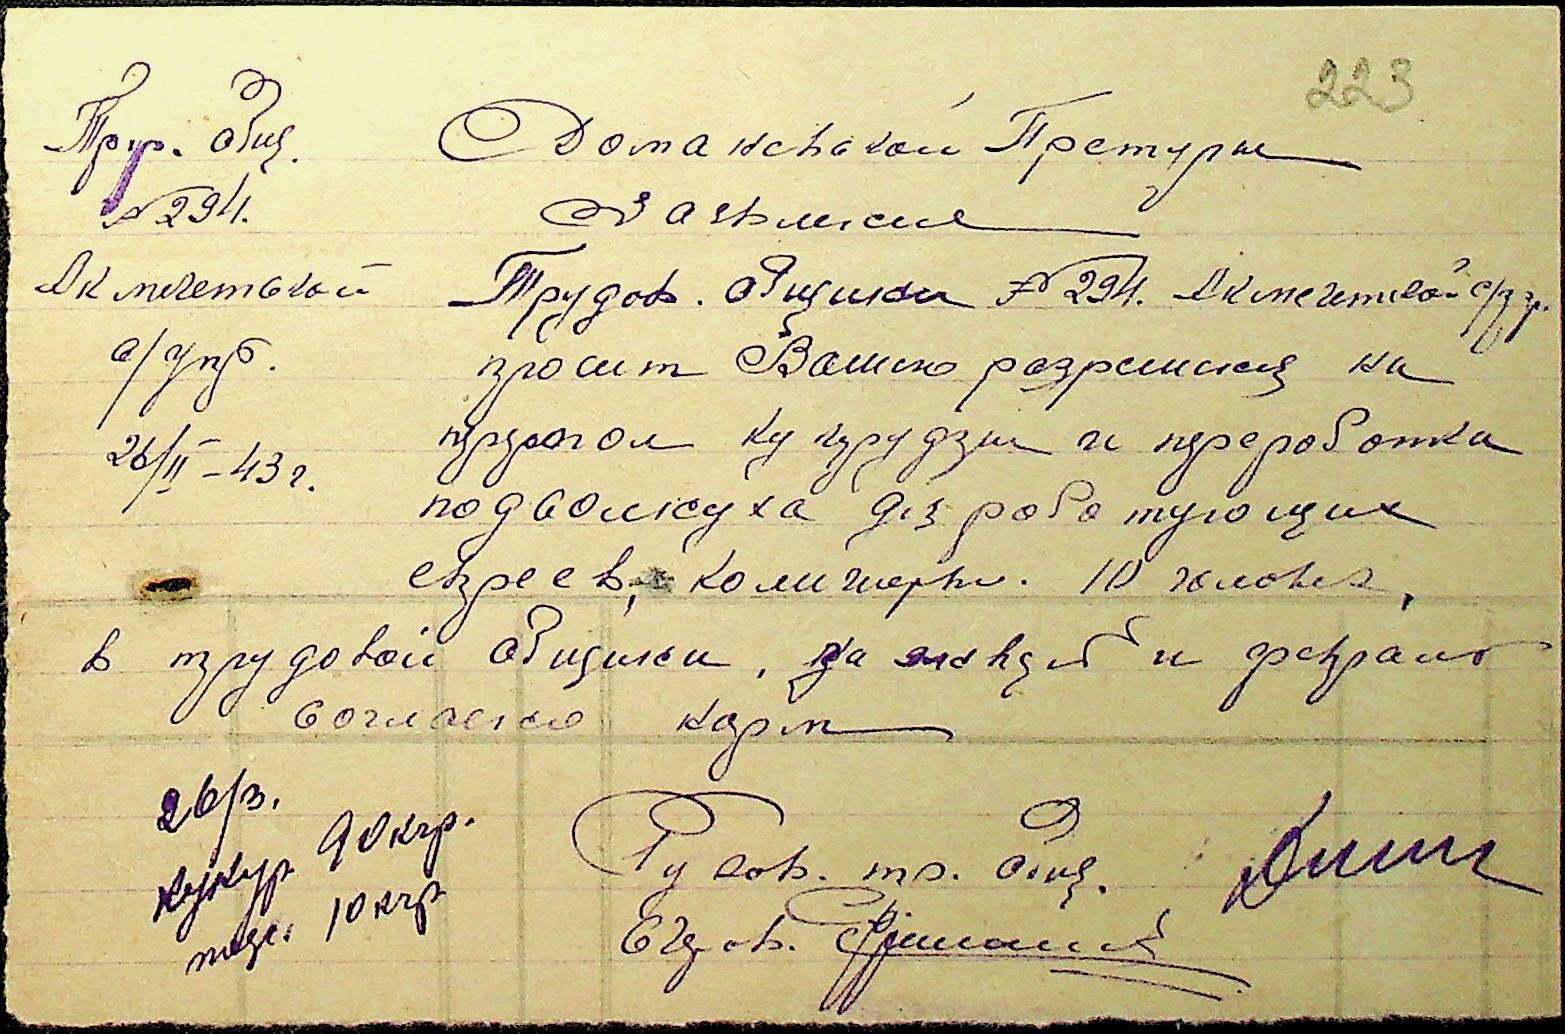 223
Тру. общ.
№ 294.
Акмечетской
с/упр.
26/II – 43 г.
Доманевской Претуры
Заявление
Трудов. общины № 294. Акмечетской с/упр.
просит Вашего разрешения на
промол кукурудзы и переработки
подсолнуха для роботующих
евреев, количеств. 10 человек,
в трудовой общины, за январь и февраль
согласно норм
26/3.
кукур. 90 кгр.
подс. 10 кгр
Руков. тр. общ.
Счетов.